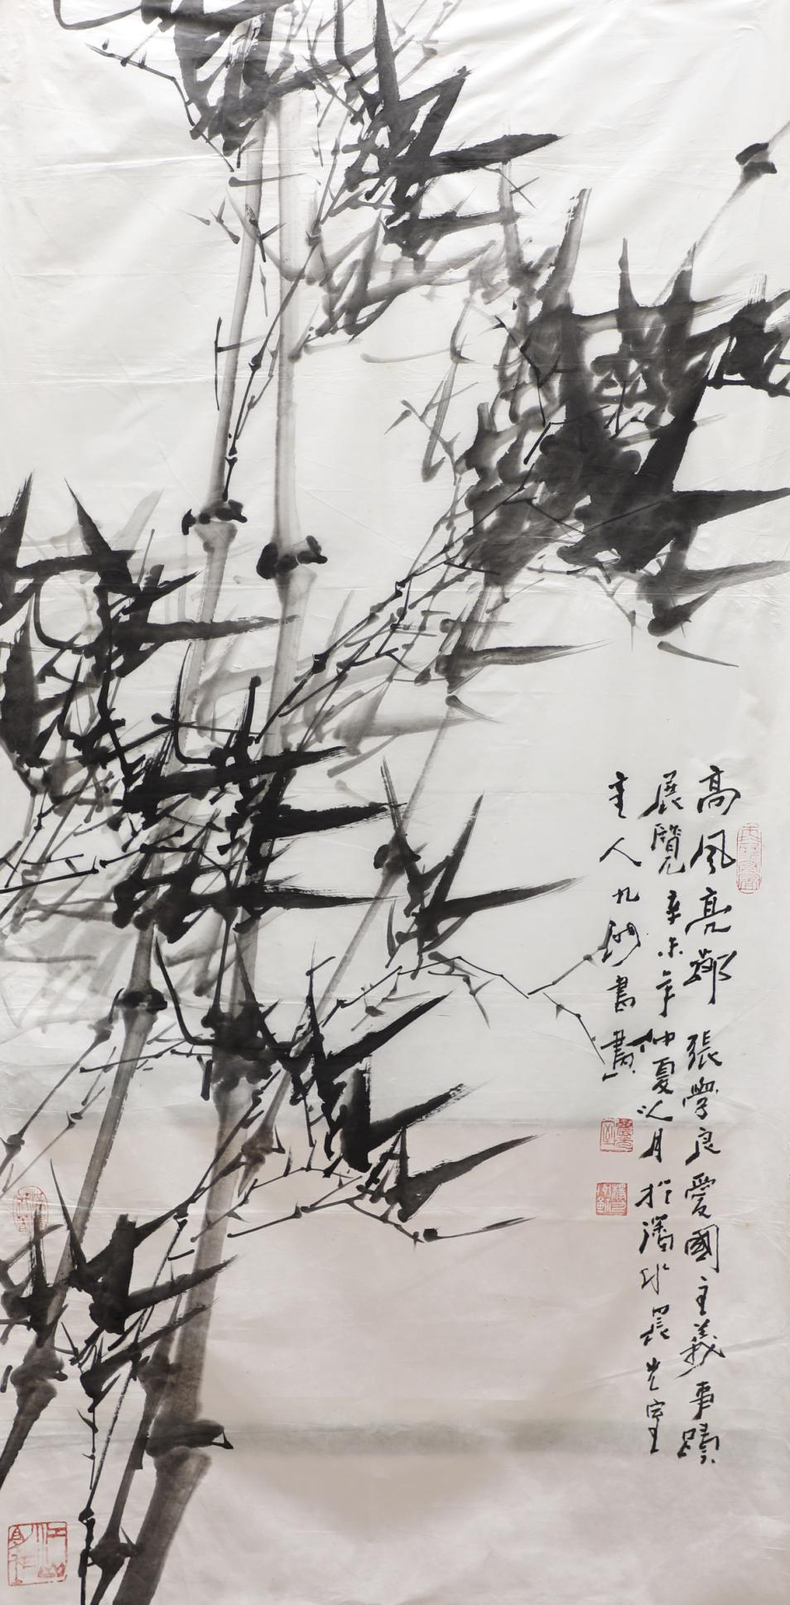 高风亮節 張學良愛國主義事蹟
展覽 辛未年仲夏以月於潘水晨光室
主人九湖書畫